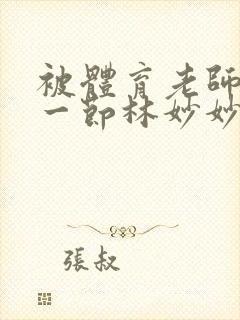 被體育老師
一節林妙妙
張叔